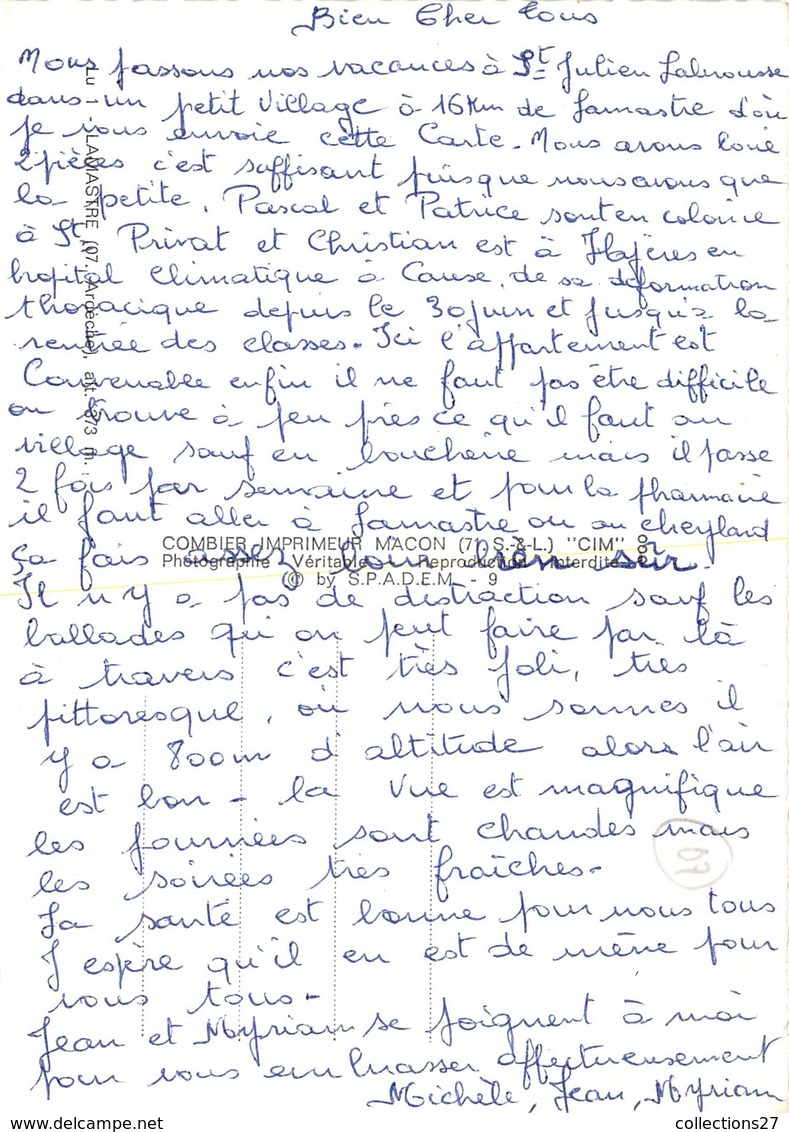 Bien Cher tous
Nous passons nos vacances à St Julien Labrousse
dans un petit village à 16 Km de Lamastre d'où
je vous envoie cette Carte. Nous avons loué
2 pièces c'est suffisant puisque nous avons que
la petite. Pascal et Patrice sont en colonie
à St Privat et Christian est à Hyères en
hopital Climatique à Cause de sa déformation
thoracique depuis le 30 juin et jusqu'à la
rentrée des classes. Ici l'appartement est
Convenable enfin il ne faut pas être difficile
on trouve à peu près ce qu'il faut au
village sauf en boucherie mais il passe
2 fois par semaine et pour la pharmacie
il faut aller à Lamastre ou au cheylard
ça fais assez loin bien sûr.
Il n'y a pas de distraction sauf les
ballades qu'on peut faire par là
à travers c'est très joli, très
pittoresque, où nous sommes il
y a 800m d'altitude alors l'air
est bon - la vue est magnifique
les journées sont chaudes mais
les soirées très fraîches.
La santé est bonne pour nous tous
J'espère qu'il en est de même pour
vous tous.
Jean et Myriam se joignent à moi
pour vous embrasser affectueusement
Michèle, Jean, Myriam
Lu 1 - LAMASTRE (07. Ardèche), alt. 373 m.
COMBIER IMPRIMEUR MACON (71 S.-&-L.) "CIM"
Photographie Véritable - Reproduction Interdite
© by S.P.A.D.E.M. - 9
07
collections27